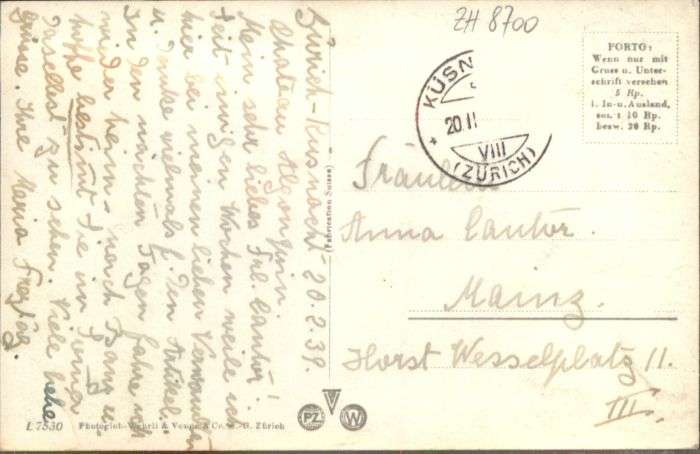 ZH 8700
Zürich-Küsnacht 20.2.39.
Chateau Algonquin.
Mein sehr liebes Frl. Cantor!
Seit einigen Wochen weile ich
hier bei meinen lieben Verwandten
u. danke vielmals f. den Artikel.
In den nächsten Tagen fahre ich
wieder heim- nach Bonn u.
hoffe bestimmt Sie im
daselbst zu sehen. Viele liebe
Grüsse. Ihre Maria
KÜSN
20 II
VIII
(ZÜRICH)
PORTO:
Wenn nur mit
Gruss u. Unter-
schrift versehen
5 Rp.
i. In- u. Ausland,
sonst 10 Rp.
bezw. 20 Rp.
Fräulein
Anna Cantor.
Mainz.
Horst Wesselplatz 11.
III.
(Fabrication Suisse)
L 7530 Photogloh-Wehrli & Vouga & Co. A.-G. Zürich
PZ W